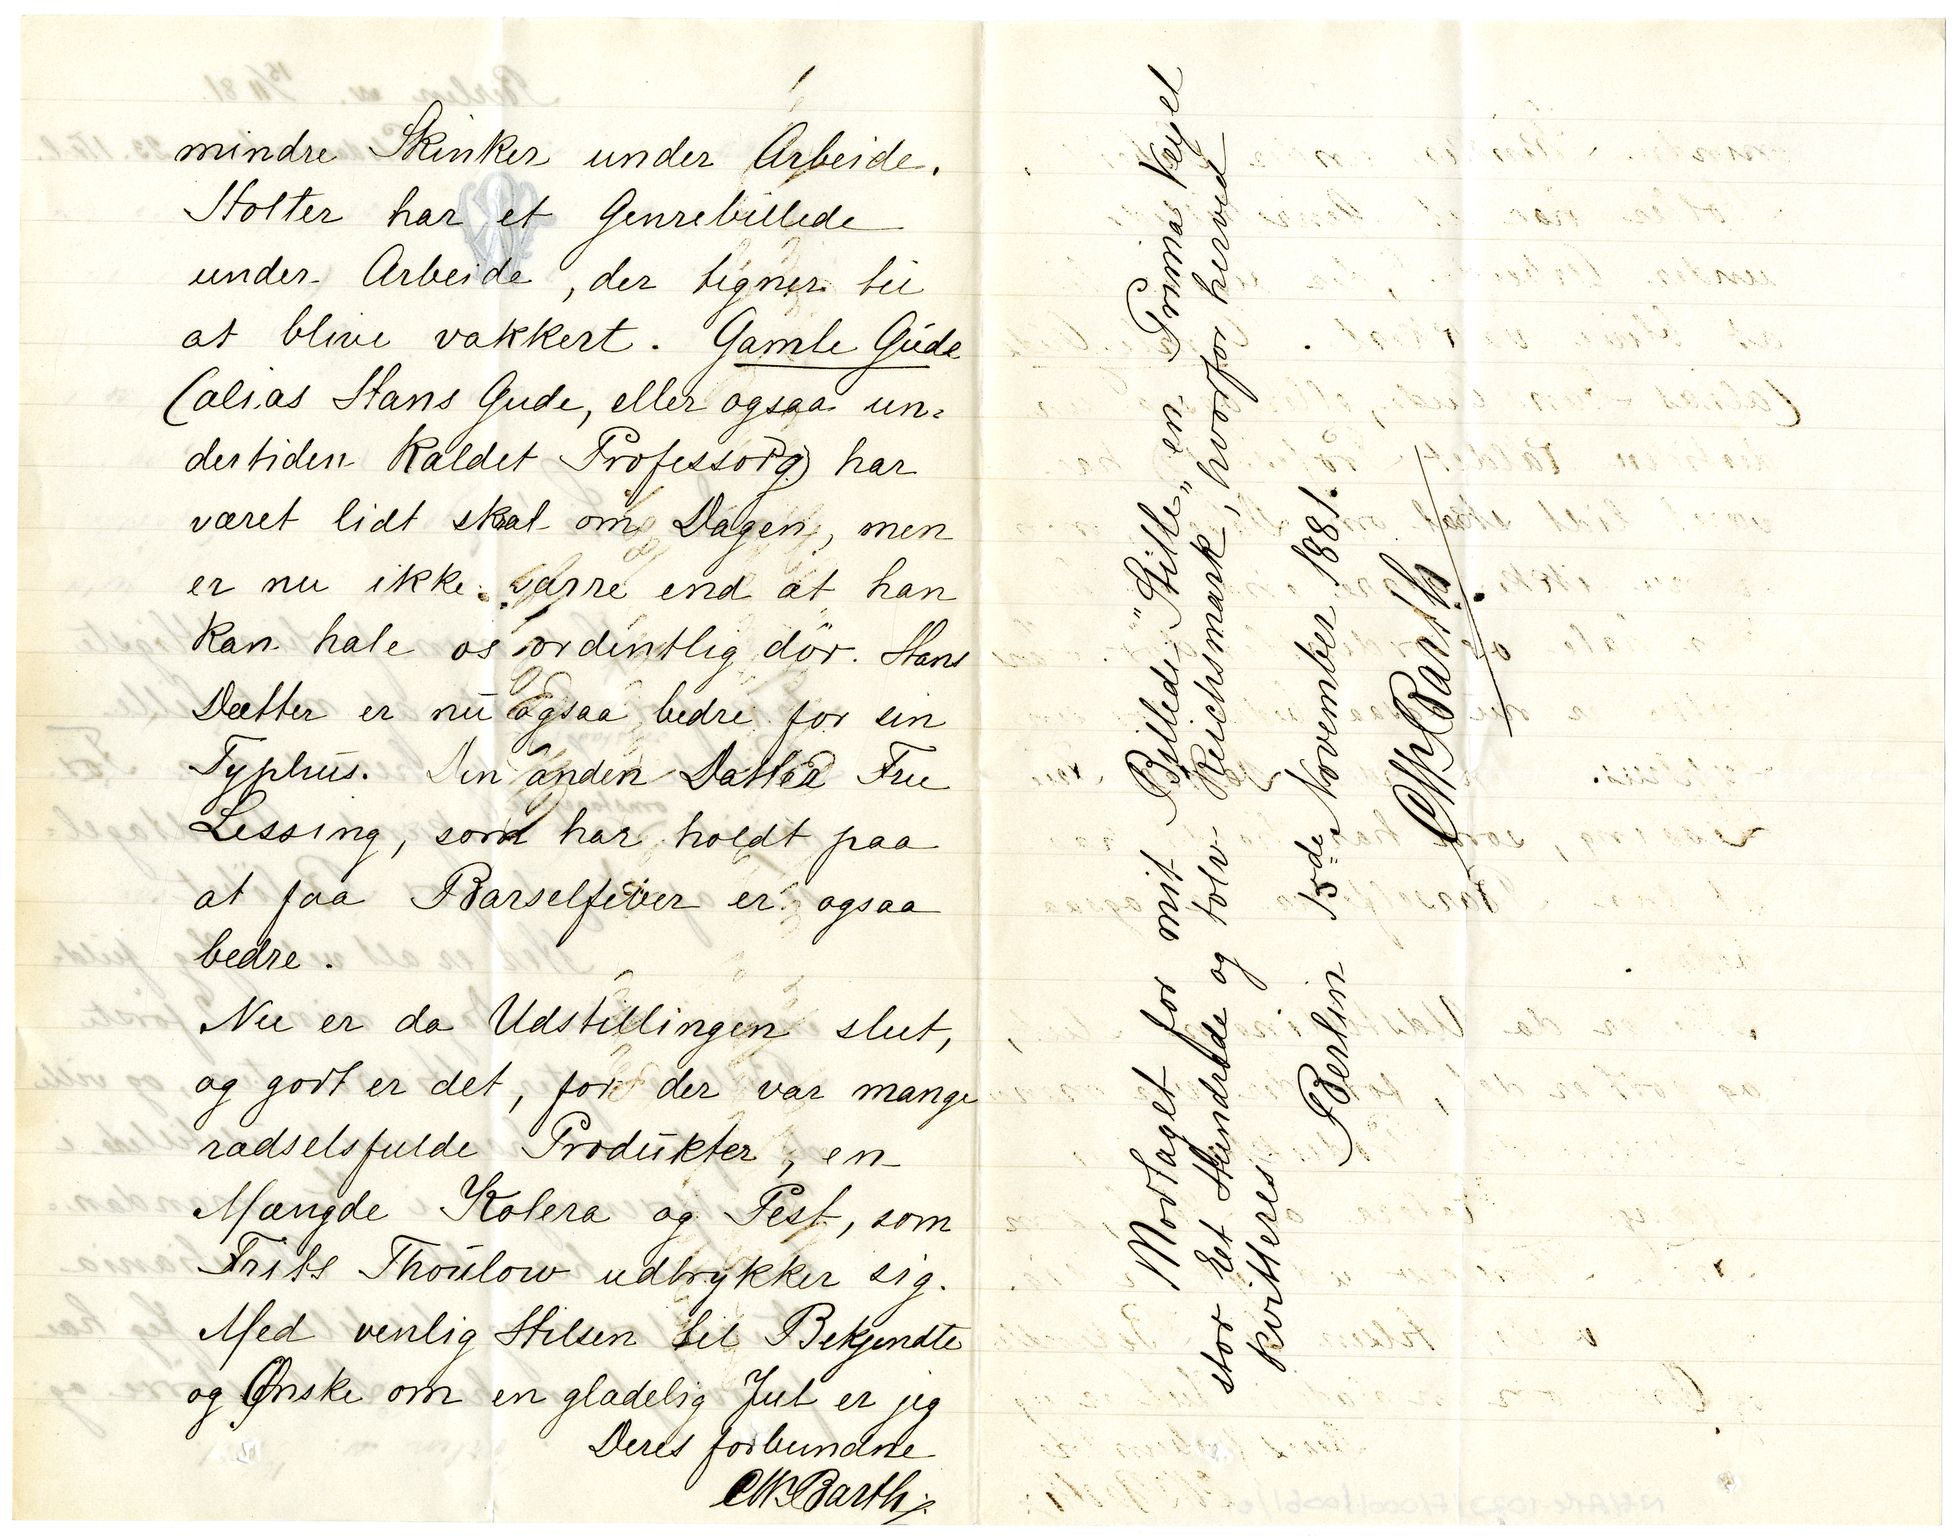 mindre Skinker under Arbeide.
Holter har et Genrebillede
under Arbeide, der tegner til
at blive vakkert. Gamle Gude
(alias Hans Gude, eller ogsaa un-
dertiden kaldet Professorg) har
været lidt skral om Dagen, men
er nu ikke værre end at han
kan hale os ordentlig dör. Hans
Datter er nu ogsaa bedre for sin
Typhus. Den anden Datter Fru
Lessing, som har holdt paa
at faa Barselfeber er ogsaa
bedre.
Nu er da Udstillingen slut,
og godt er det, for der var mange
rædselsfulde Produkter, en
Mængde Kolera og Pest, som
Frits Thoulow udtrykker sig.
Med venlig Hilsen til Bekjendte
og Ønske om en glædelig Jul er jeg
Deres forbundne
CWBarth.
Modtaget for mit Billede "Stille" en Prima Vexel
stor Et Hundrede og tolv Reichsmark, hvorfor herved
kvitteres
Berlin 15de November 1881.
CWBarth